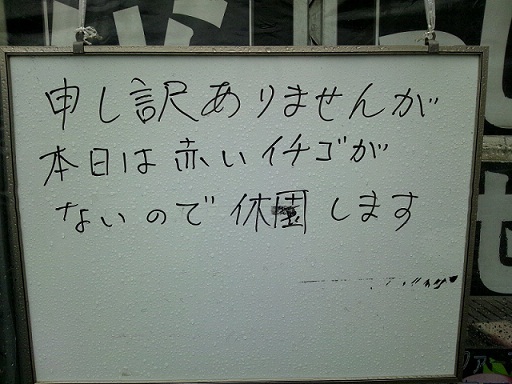 申し訳ありませんが
本日は赤いイチゴが
ないので休園します